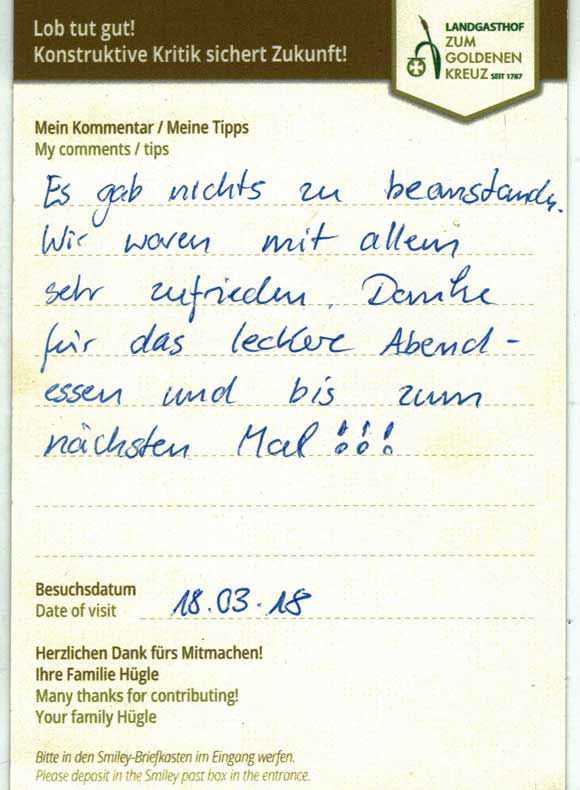 Lob tut gut!
Konstruktive Kritik sichert Zukunft!
LANDGASTHOF
ZUM
GOLDENEN
KREUZ SEIT 1787
Mein Kommentar / Meine Tipps
My comments / tips
Es gab nichts zu beanstanden.
Wir waren mit allem
sehr zufrieden. Danke
für das leckere Abend-
essen und bis zum
nächsten Mal!!!
Besuchsdatum
Date of visit 18.03.18
Herzlichen Dank fürs Mitmachen!
Ihre Familie Hügle
Many thanks for contributing!
Your family Hügle
Bitte in den Smiley-Briefkasten im Eingang werfen.
Please deposit in the Smiley post box in the entrance.